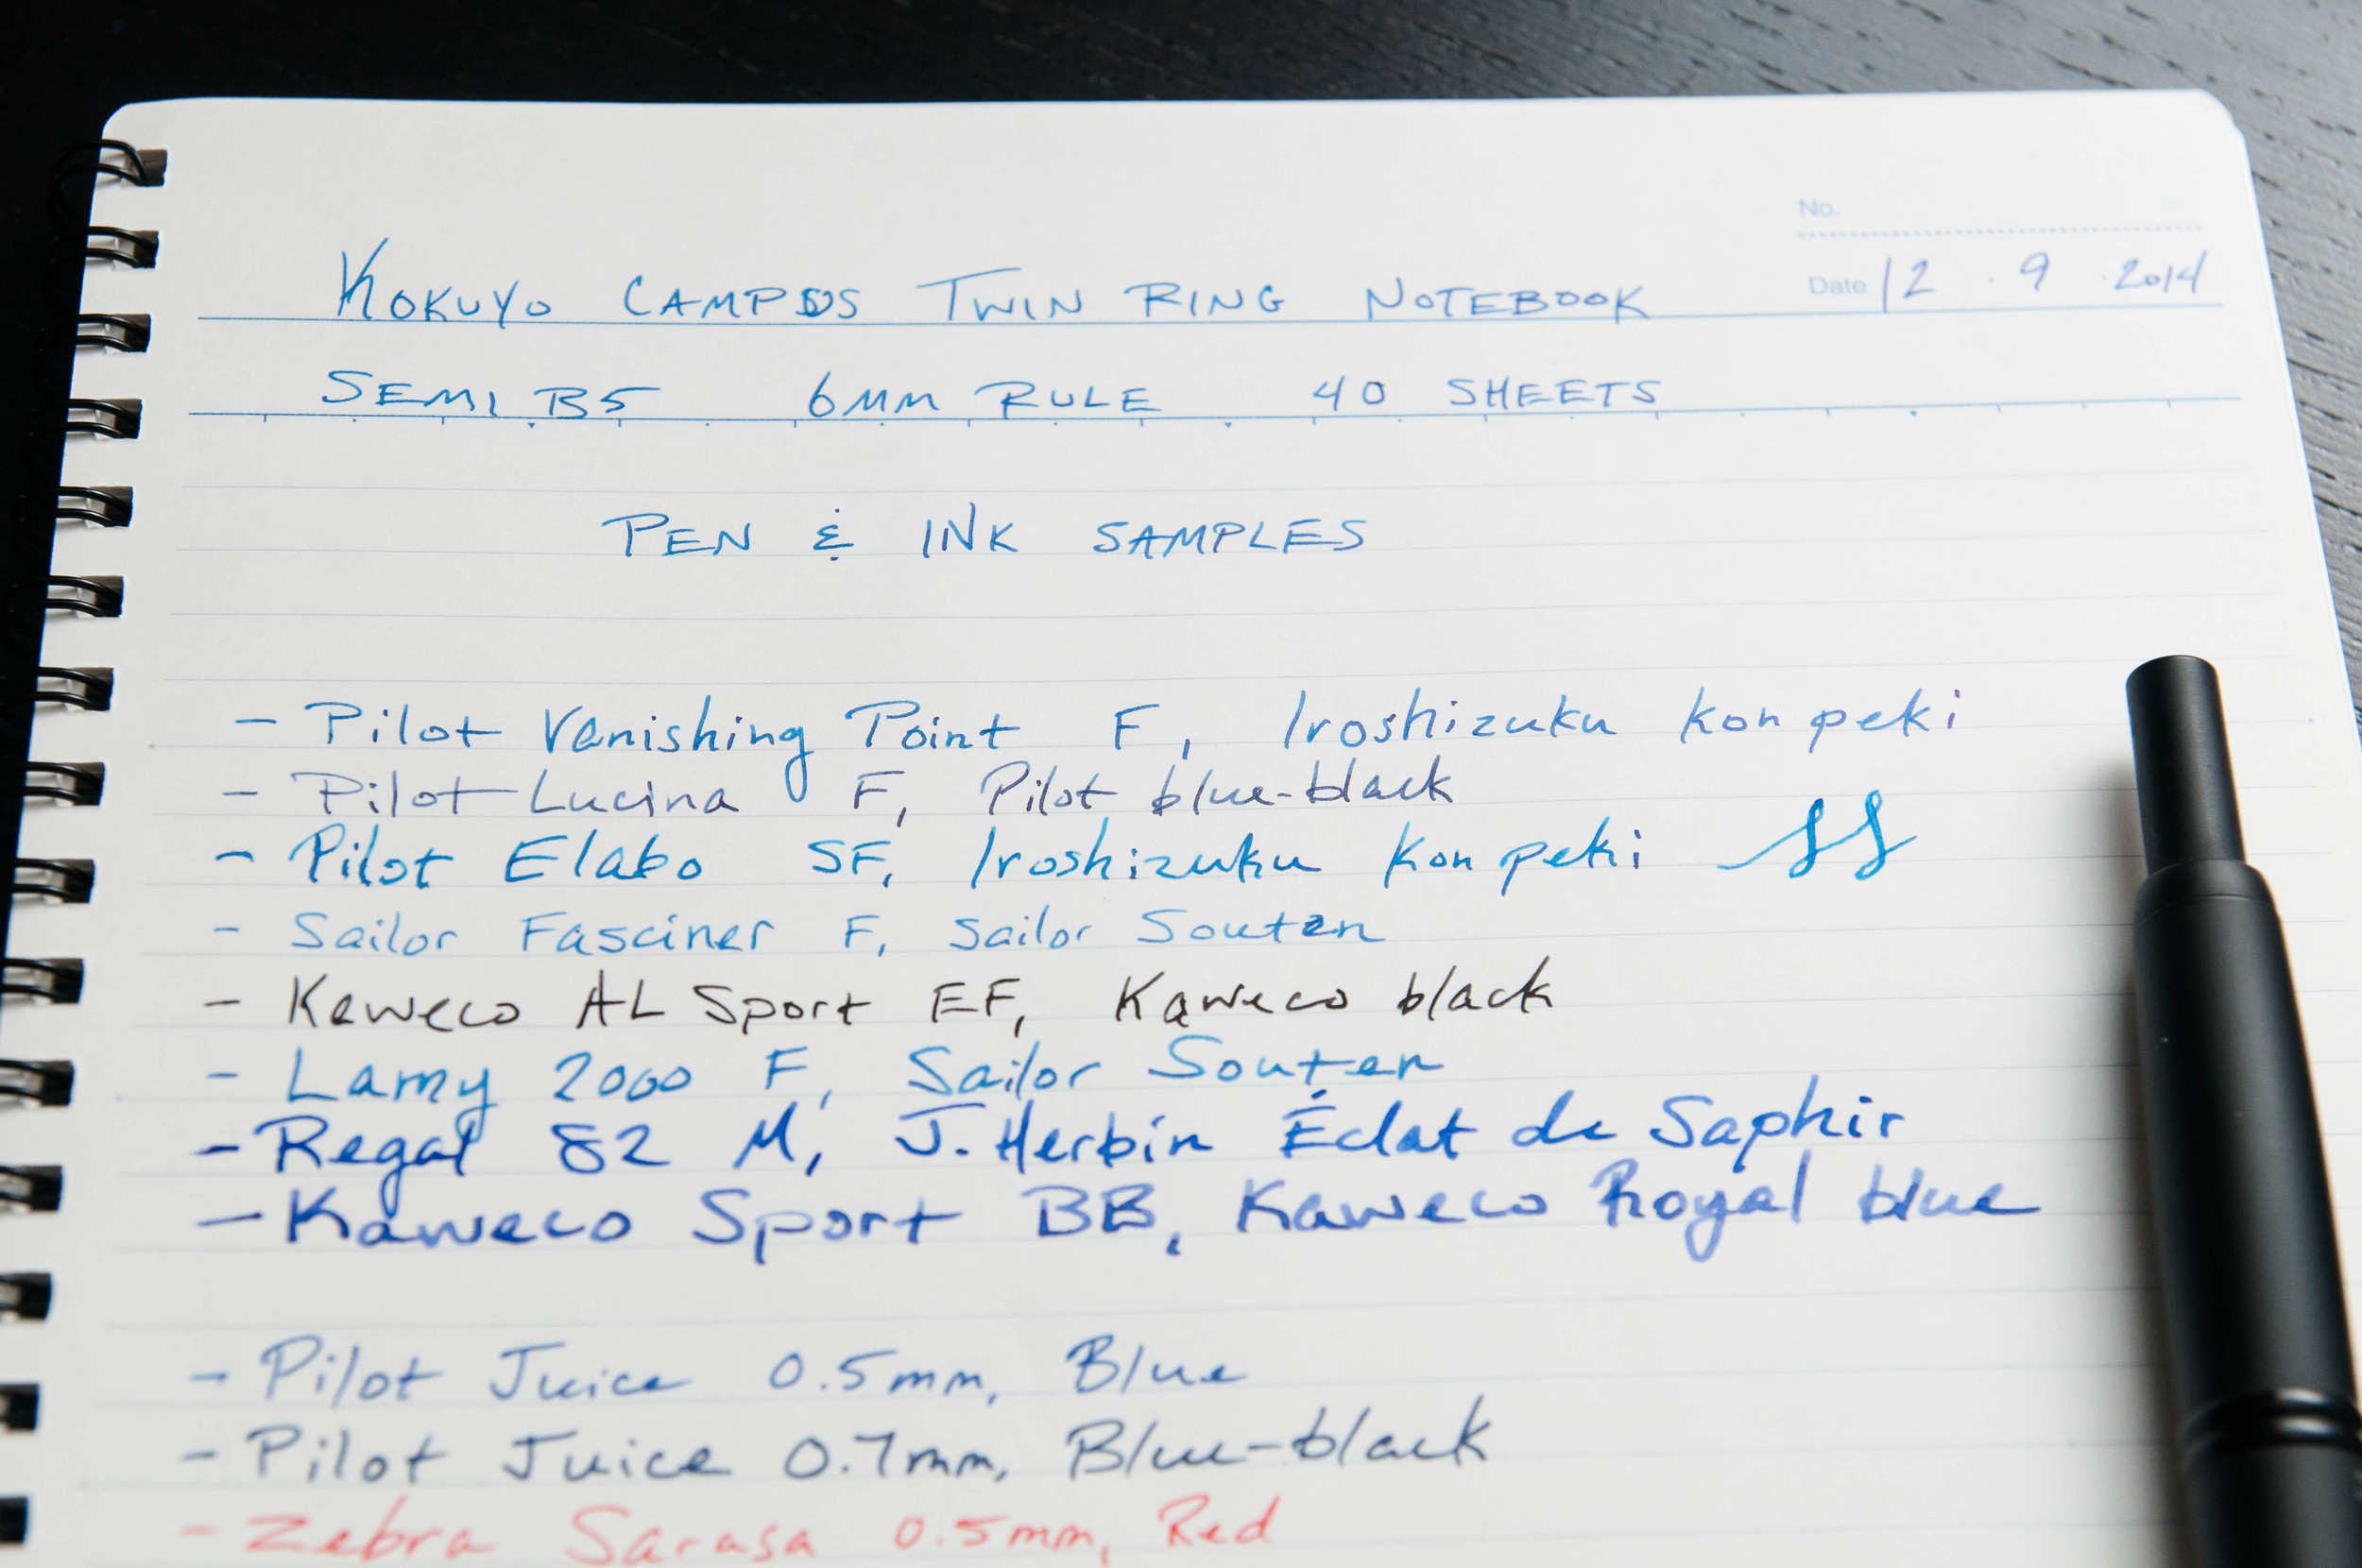 No.
KOKUYO CAMPUS TWIN RING NOTEBOOK Date 12 . 9 . 2014
SEMI B5 6MM RULE 40 SHEETS
PEN & INK SAMPLES
- Pilot Vanishing Point F, Iroshizuku Kon peki
- Pilot Lucina F, Pilot blue-black
- Pilot Elabo SF, Iroshizuku Kon peki
- Sailor Fasciner F, Sailor Souten
- Kaweco AL Sport EF, Kaweco black
- Lamy 2000 F, Sailor Souten
- Regal 82 M, J. Herbin Éclat de Saphir
- Kaweco Sport BB, Kaweco Royal blue
- Pilot Juice 0.5mm, Blue
- Pilot Juice 0.7mm, Blue-black
- Zebra Sarasa 0.5mm, Red